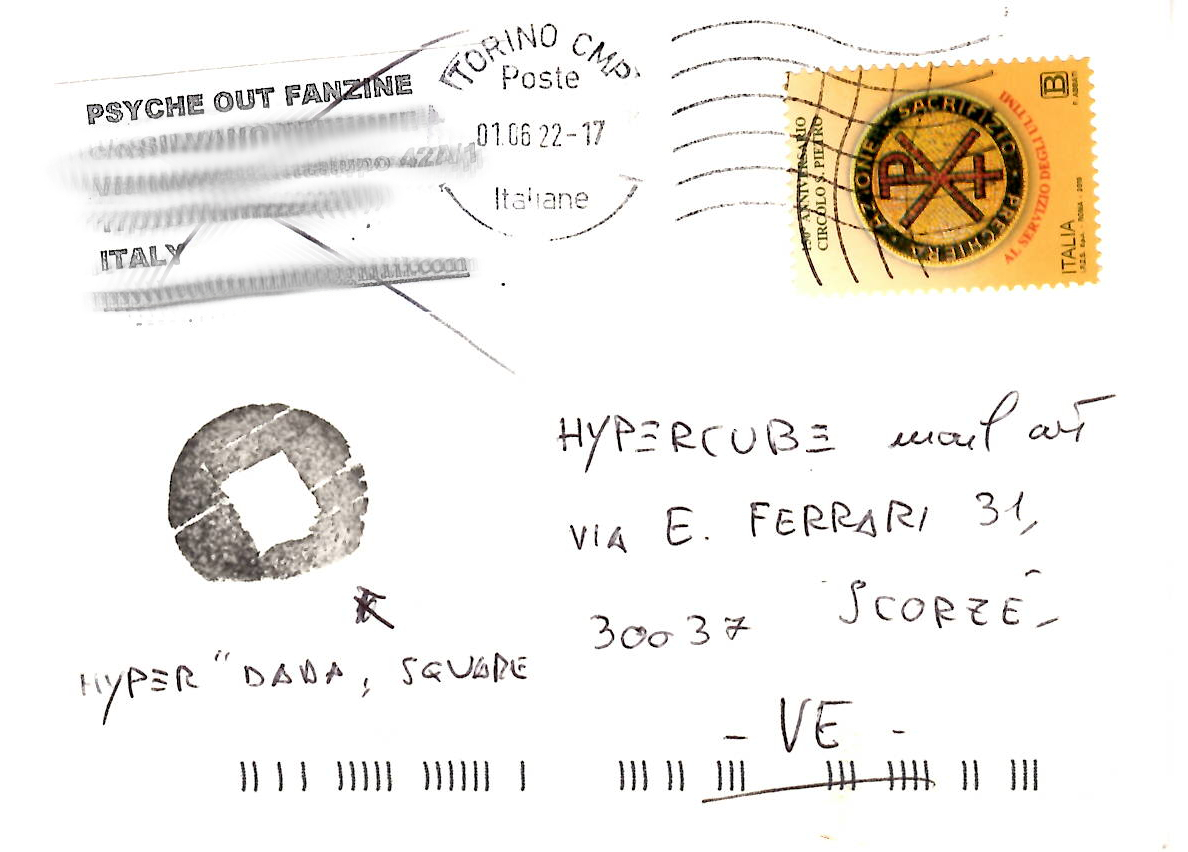 PSYCHE OUT FANZINE
42/A/1
ITALY
TORINO CMP
Poste
01.06 22-17
Italiane
150° ANNIVERSARIO
CIRCOLO S. PIETRO
AZIONE · SACRIFIZIO · PREGHIERA
AL SERVIZIO DEGLI ULTIMI
B
ITALIA
ROMA - 2019
HYPERCUBE mail art
VIA E. FERRARI 31,
30037 SCORZÉ -
- VE -
HYPER "DADA, SQUARE